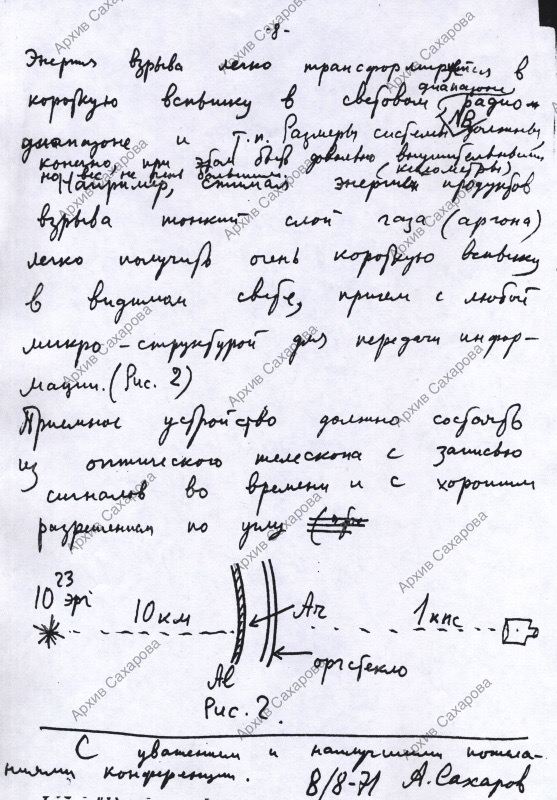 -8-
Энергия взрыва легко трансформируется в
короткую вспышку в световом диапазоне, радио
диапазоне и т.п. Размеры системы должны
конечно, при этом быть довольно внушительными
но все не очень большими. (километры)
Например, сжимая энергией продуктов
взрыва тонкий слой газа (аргона)
легко получить очень короткую вспышку
в видимом свете, причем с любой
микро-структурой для передачи инфор-
мации. (Рис. 2)
Приемное устройство должно состоять
из оптического телескопа с записью
сигналов во времени и с хорошим
разрешением по углу
10²³ эрг
10 км
Ar
1 кпс
Al
оргстекло
Рис. 2.
С уважением и наилучшими пожела-
ниями конференции. 8/8-71 А. Сахаров
Архив Сахарова